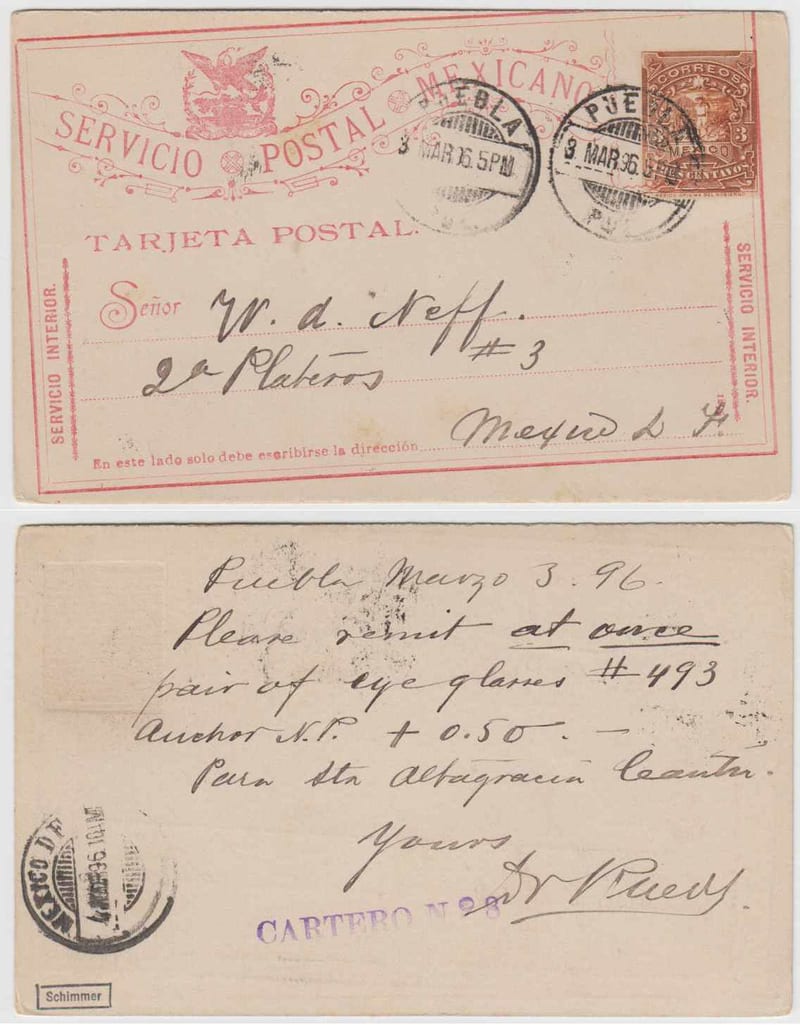 SERVICIO POSTAL MEXICANO
CORREOS
3 3
MEXICO
CENTAVOS
PUEBLA
3 MAR 96. 5PM
PUE
PUEBLA
3 MAR 96. 5PM
PUE
TARJETA POSTAL.
SERVICIO INTERIOR.
SERVICIO INTERIOR.
Señor W. d. Neff.
2a Plateros #3
Mexico D F.
En este lado solo debe escribirse la dirección
Puebla Marzo 3. 96.
Please remit at once
pair of eye glasses #493
Anchor N.P. + 0.50. —
Para Sta Altagracia Cantu.
Yours
Dr
MEXICO D.F.
96. 10AM
CARTERO Nº 8
Schimmer